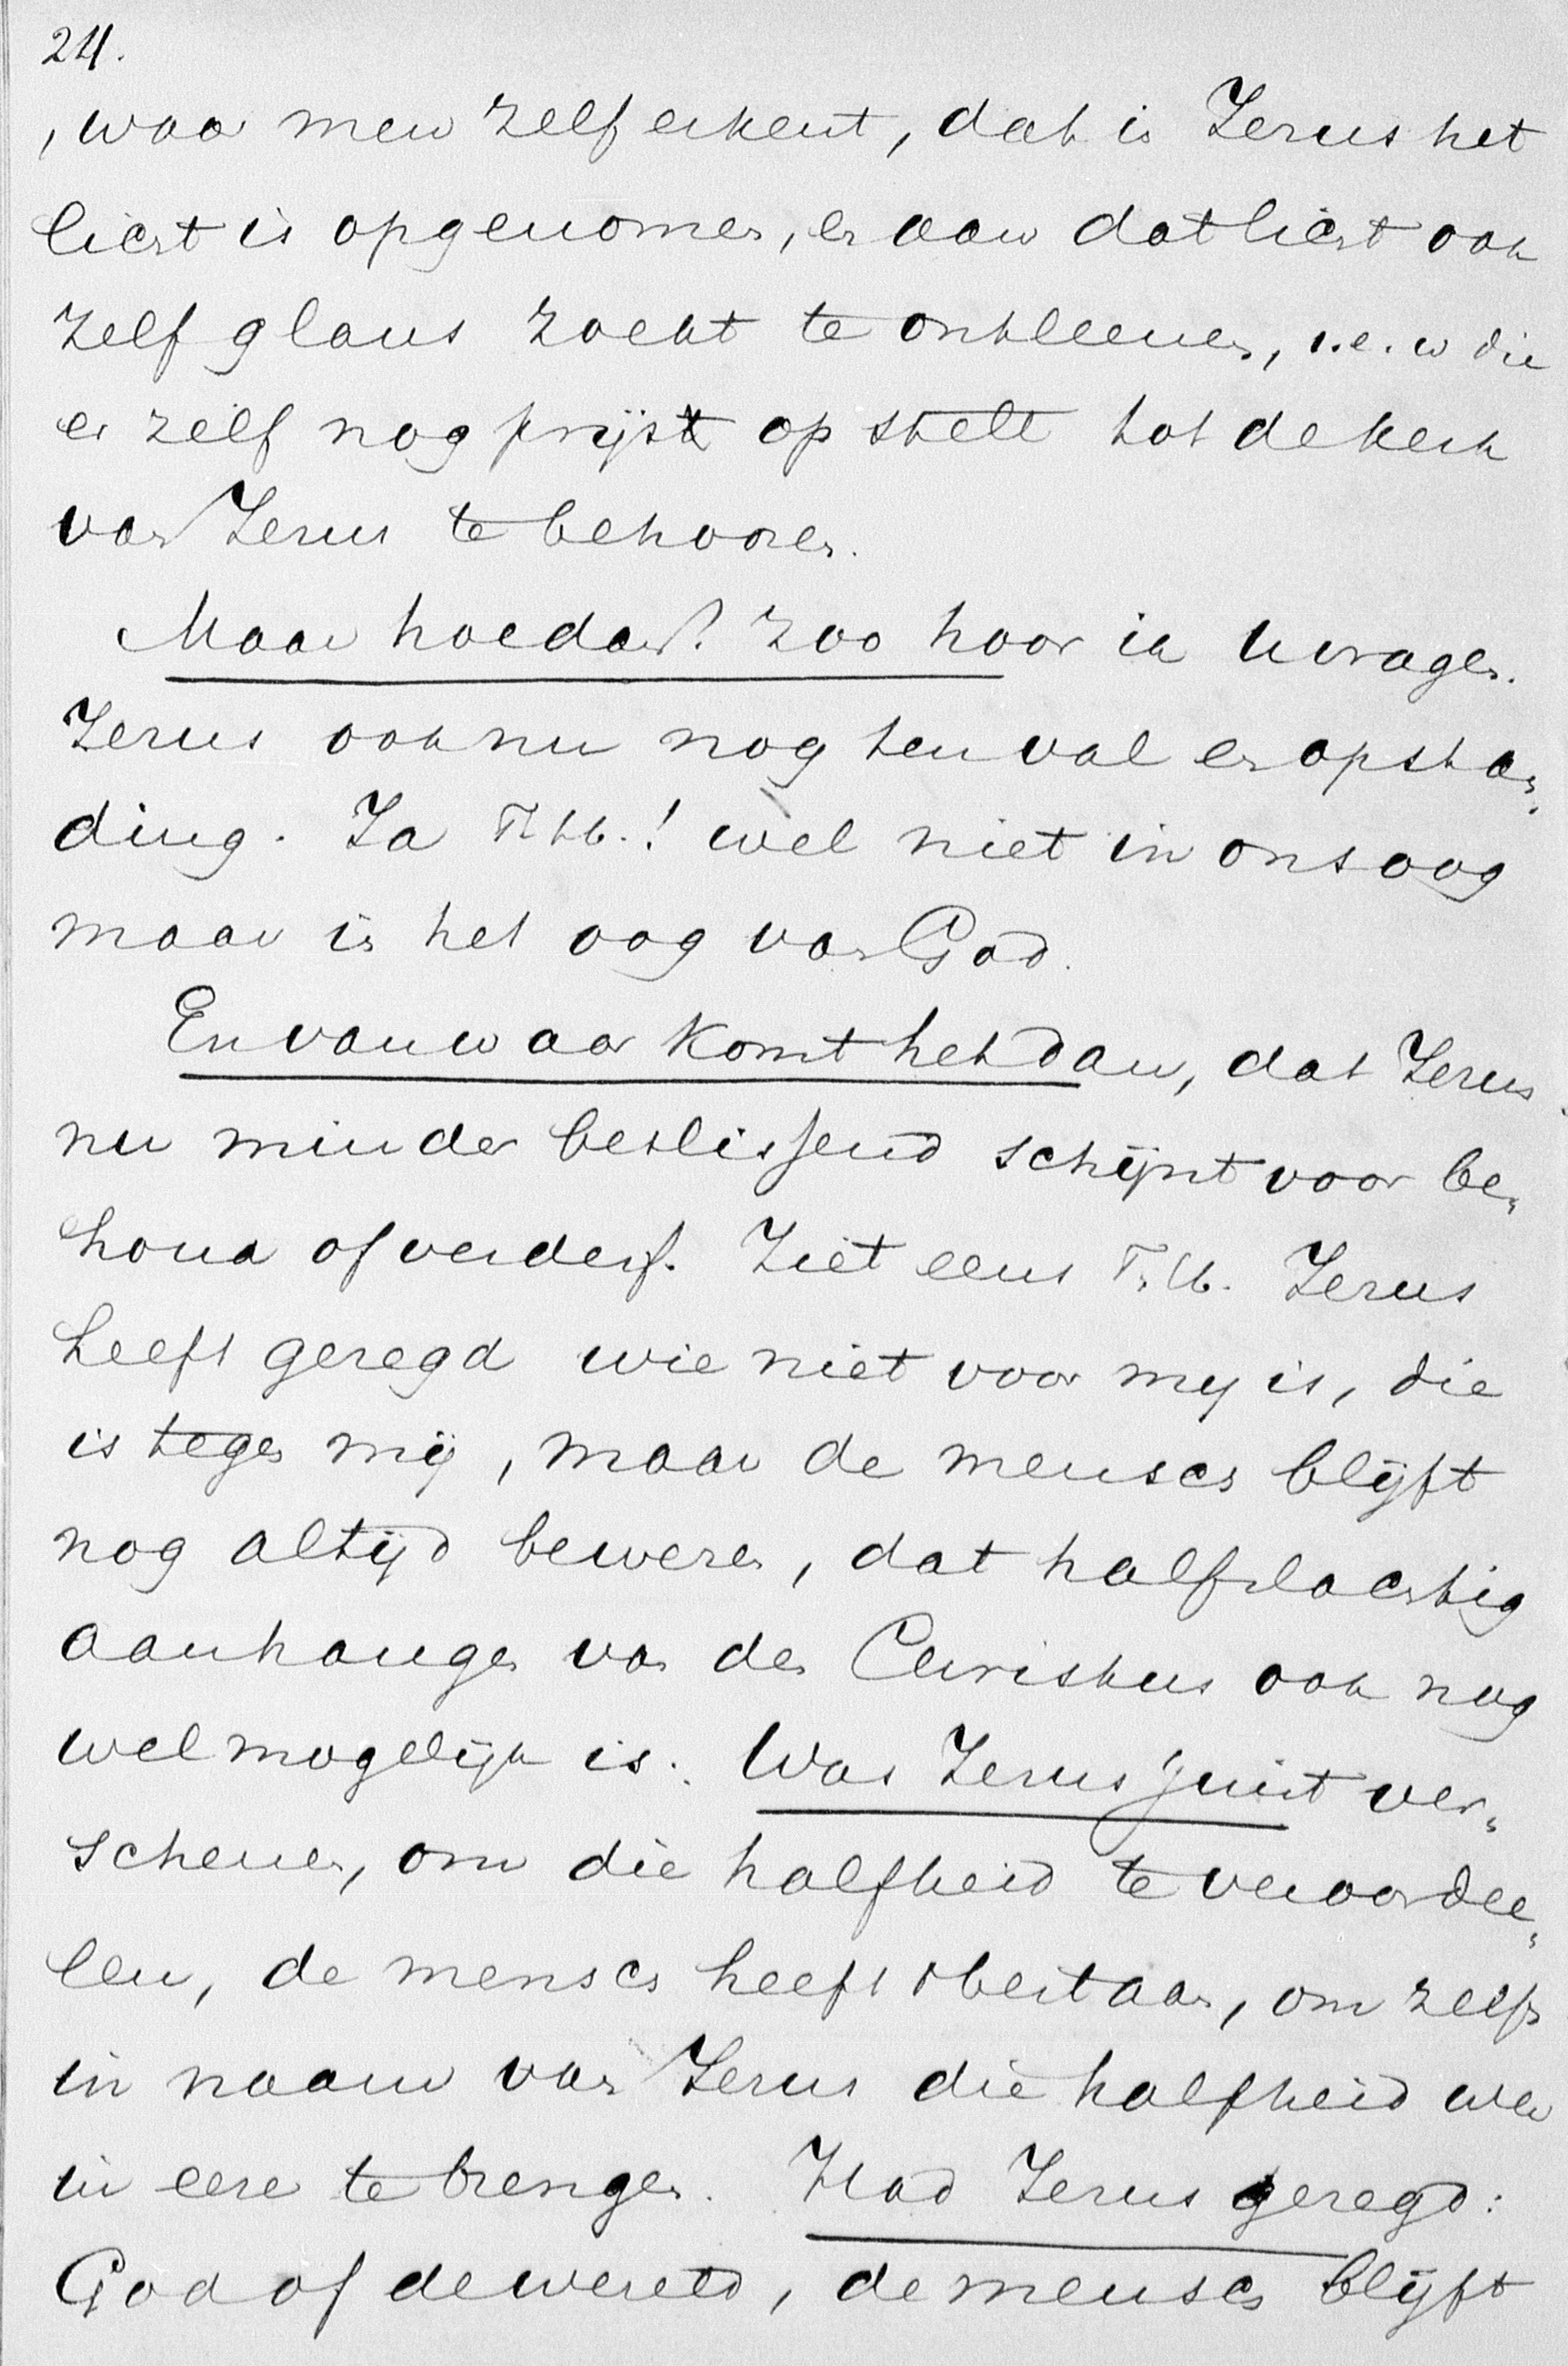 24.
, waar men zelf erkent, dat in Jezus het
licht is opgenomen, en aan dat licht ook
zelf glans zoekt te ontleenen, i.e.w die
er zelf nog prijs op stelt tot de kerk
van Jezus te behooren.
Maar hoe dan? zoo hoor ik u vragen.
Jezus ook nu nog ten val en opstan„
ding. Ja T. hb.! wel niet in ons oog
maar in het oog van God.
En van waar komt het dan, dat Jezus
nu minder beslissend schijnt voor be„
houd of verderf. Ziet eens T. hb. Jezus
heeft gezegd wie niet voor mij is, die
is tegen mij, maar de mensch blijft
nog altijd beweren, dat halfslachtig
aanhangen van den Christus ook nog
wel mogelijk is. Was Jezus juist ver„
schenen, om die halfheid te veroordee„
len, de mensch heeft bestaan, om zelfs
in naam van Jezus die halfheid weer
in eere te brengen. Had Jezus gezegd:
God of de wereld, de mensch blijft